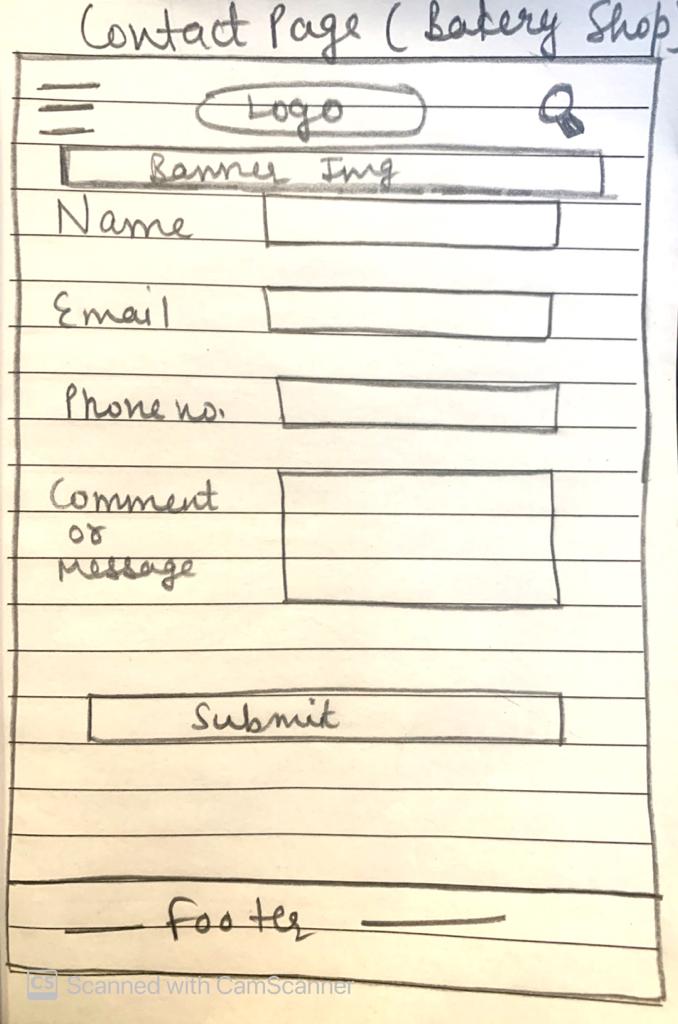 Contact Page (Bakery Shop)
Logo
Banner Img
Name
Email
Phone no.
Comment
or
Message
Submit
Footer
CS Scanned with CamScanner